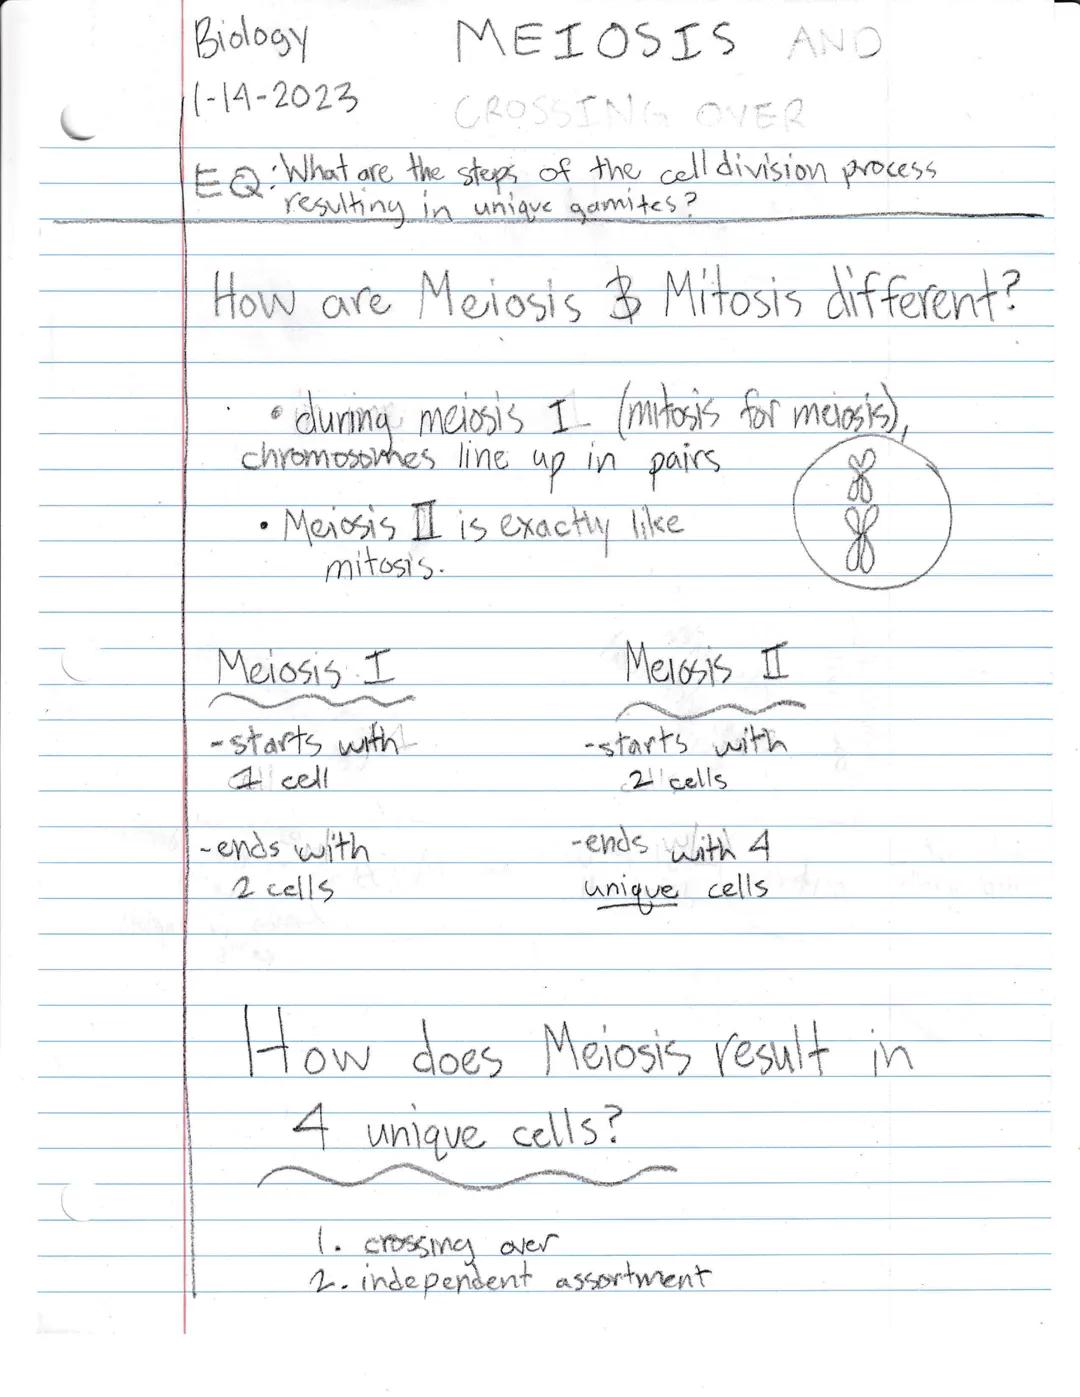 Biology
MEIOSIS AND
1-14-2023
CROSSING OVER
EQ: What are the steps of the cell division process
resulting in unique gamites?
How are Meiosis & Mitosis different?
• during meiosis I (mitosis for meiosis),
chromosomes line up in pairs
• Meiosis II is exactly like
mitosis.
Meiosis I
Meiosis II
-starts with
1 cell
-starts with
2 cells
-ends with
2 cells
-ends with 4
unique cells
How does Meiosis result in
4 unique cells?
1. crossing over
2. independent assortment